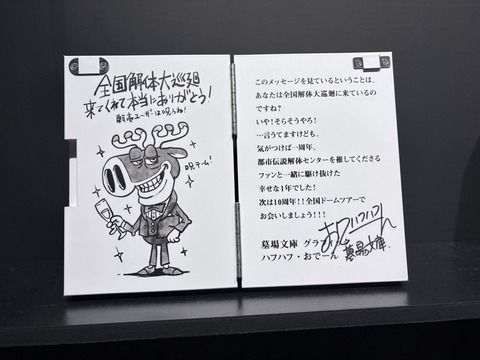 全国解体大巡廻
来てくれて本当にありがとう!
転売ユーザーは呪うね!
呪チーム!
このメッセージを見ているということは、
あなたは全国解体大巡廻に来ているの
ですね?
いや!そらそうやろ!
…言うてますけども。
気がつけば一周年。
都市伝説解体センターを推してくださる
ファンと一緒に駆け抜けた
幸せな1年でした!
次は10周年!!全国ドームツアーで
お会いしましょう!!!
墓場文庫 グラフィック
ハフハフ・おでーん
墓場文庫.